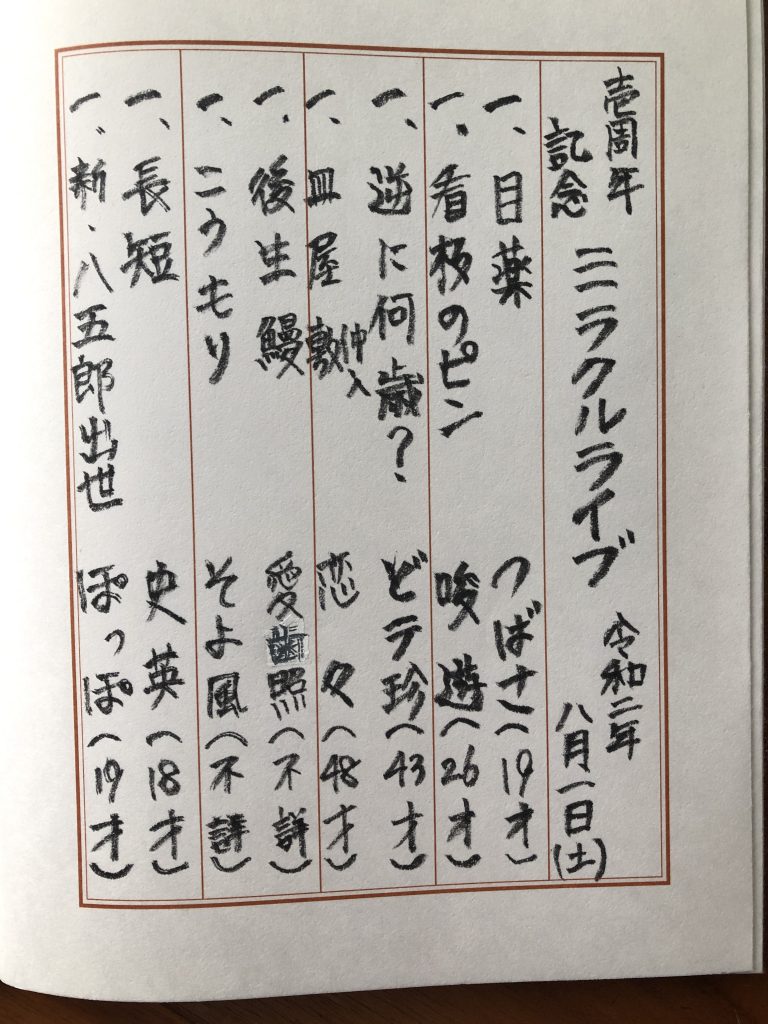 壱周年
記念
ミラクルライブ
令和二年
八月一日(土)
一、目薬 つばさ(19才)
一、看板のピン 唆遊(26才)
一、逆に何歳? どテ珍(43才)
一、皿屋敷 恋々(48才)
仲入
一、後生鰻 愛歯照(不詳)
一、こうもり そよ風(不詳)
一、長短 史英(18才)
一、新・八五郎出世 ぽっぽ(19才)